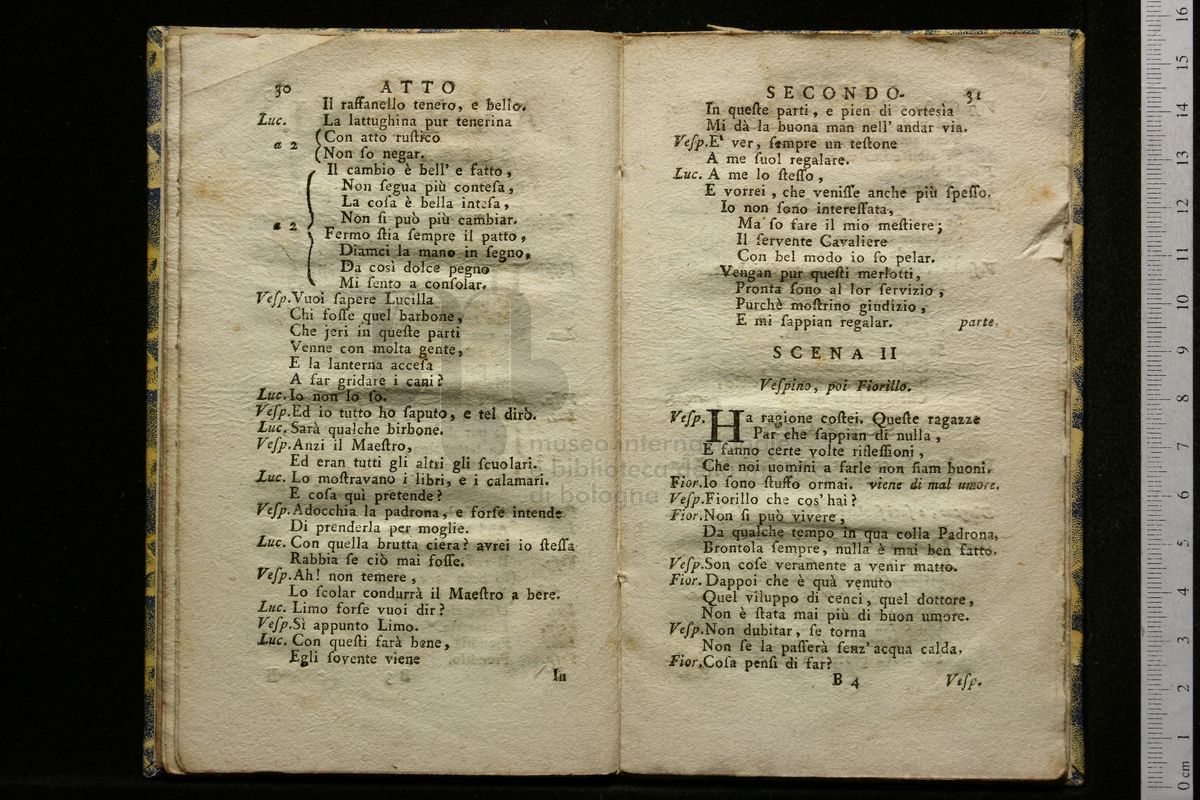 30 ATTO
Il raffanello tenero, e bello.
Luc. La lattughina pur tenerina
a 2 (Con atto rustico
(Non so negar.
Il cambio è bell' e fatto,
Non segua più contesa,
La cosa è bella intesa,
a 2 Non si può più cambiar.
Fermo stia sempre il patto,
Diamci la mano in segno,
Da così dolce pegno
Mi sento a consolar.
Vesp. Vuoi sapere Lucilla
Chi fosse quel barbone,
Che jeri in queste parti
Venne con molta gente,
E la lanterna accesa
A far gridare i cani?
Luc. Io non lo so.
Vesp. Ed io tutto ho saputo, e tel dirò.
Luc. Sarà qualche birbone.
Vesp. Anzi il Maestro,
Ed eran tutti gli altri gli scuolari.
Luc. Lo mostravano i libri, e i calamari.
E cosa quì pretende?
Vesp. Adocchia la padrona, e forse intende
Di prenderla per moglie.
Luc. Con quella brutta ciera? avrei io stessa
Rabbia se ciò mai fosse.
Vesp. Ah! non temere,
Lo scolar condurrà il Maestro a bere.
Luc. Limo forse vuoi dir?
Vesp. Sì appunto Limo.
Luc. Con questi farà bene,
Egli sovente viene
In
SECONDO. 31
In queste parti, e pien di cortesìa
Mi dà la buona man nell' andar via.
Vesp. E' ver, sempre un testone
A me suol regalare.
Luc. A me lo stesso,
E vorrei, che venisse anche più spesso.
Io non sono interessata,
Ma so fare il mio mestiere;
Il servente Cavaliere
Con bel modo io so pelar.
Vengan pur questi merlotti,
Pronta sono al lor servizio,
Purchè mostrino giudizio,
E mi sappian regalar. parte.
SCENA II
Vespino, poi Fiorillo.
Vesp. Ha ragione costei. Queste ragazze
Par che sappian di nulla,
E fanno certe volte riflessioni,
Che noi uomini a farle non siam buoni.
Fior. Io sono stuffo ormai. viene di mal umore.
Vesp. Fiorillo che cos' hai?
Fior. Non si può vivere,
Da qualche tempo in qua colla Padrona,
Brontola sempre, nulla è mai ben fatto.
Vesp. Son cose veramente a venir matto.
Fior. Dappoi che è quà venuto
Quel viluppo di cenci, quel dottore,
Non è stata mai più di buon umore.
Vesp. Non dubitar, se torna
Non se la passerà senz' acqua calda.
Fior. Cosa pensi di far?
B 4 Vesp.
museo internazionale
e biblioteca della
di bologna
0 cm 1 2 3 4 5 6 7 8 9 10 11 12 13 14 15 16